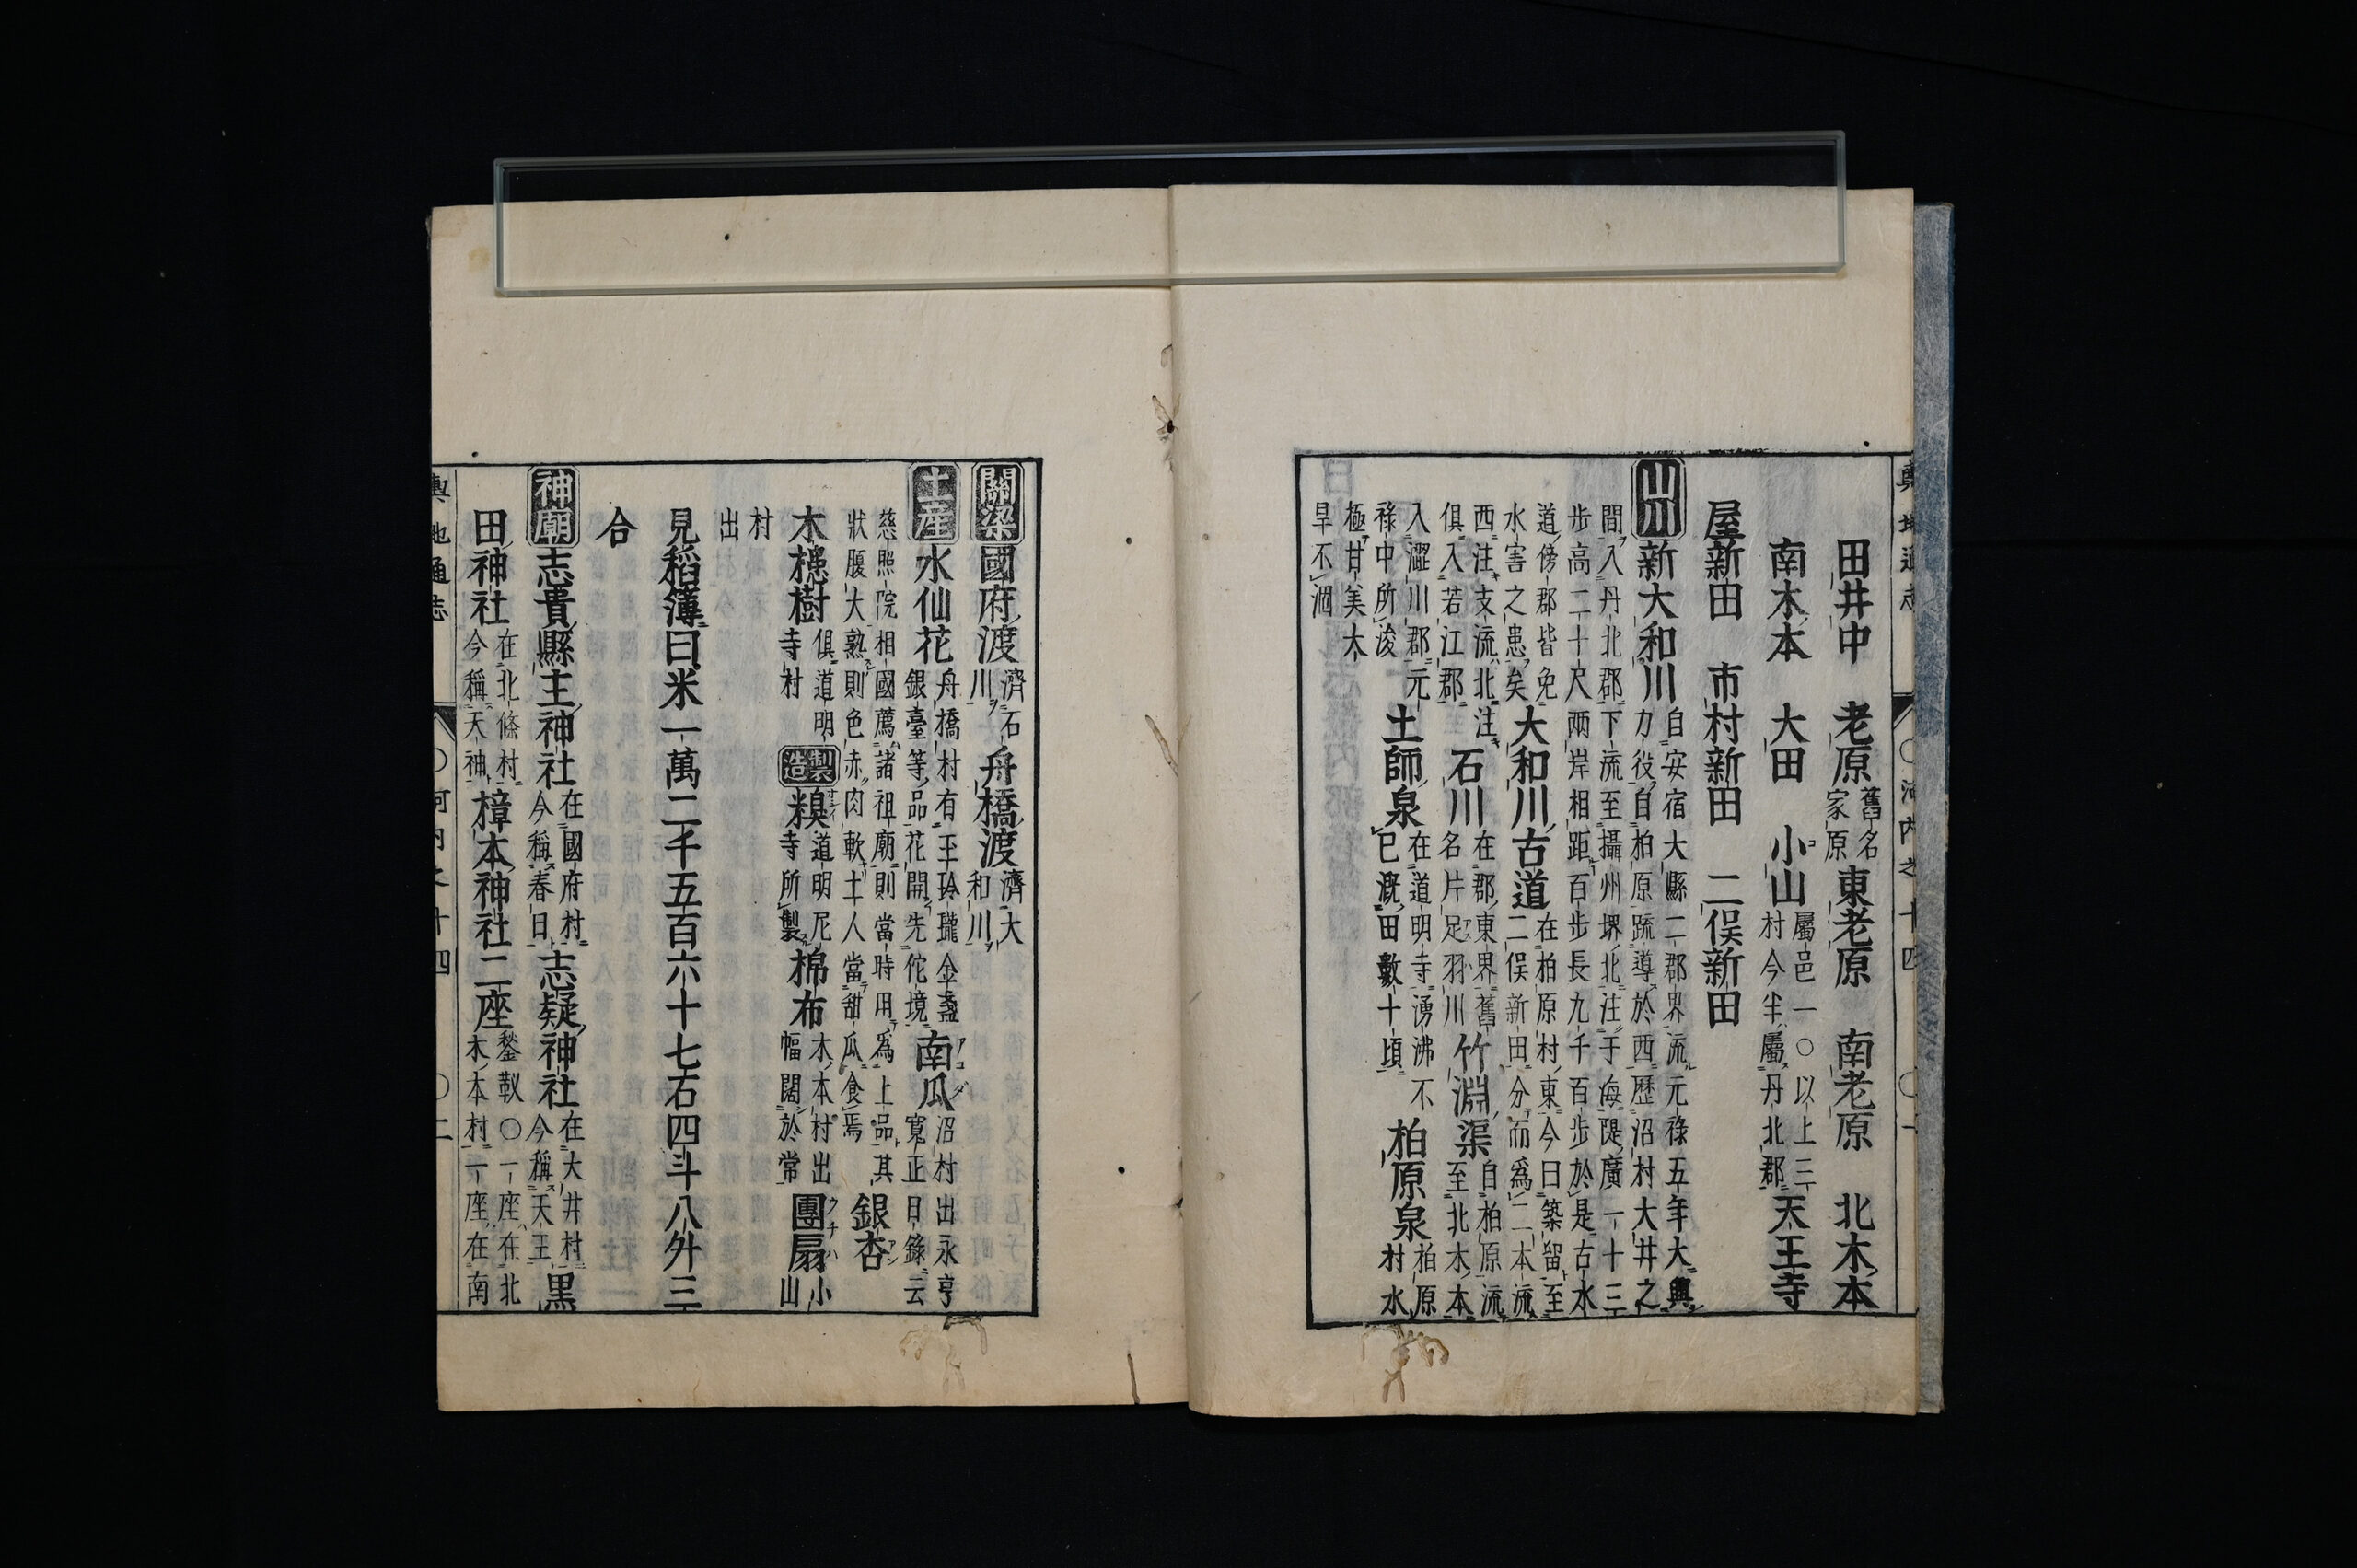 田井中 老原 舊名家原 東老原 南老原 北木本
南木本 大田 小山 屬邑一○以上三村今半屬丹北郡 天王寺
屋新田 市村新田 二俣新田
山川 新大和川 自安宿大縣二郡界流元祿五年大興力役自柏原疏導於西歷沼村大井之
間入丹北郡下流至攝州堺北注于海隄廣一十三步高二十尺兩岸相距百步長九千百步於是古水
道傍郡皆免水害之患矣 大和川古道 在柏原村東今曰築留至二俣新田分而爲二本流
西注支流北注俱入若江郡 石川 在郡東界舊名片足羽川 竹淵渠 自柏原流至北木本
入澀川郡元祿中所浚 土師泉 在道明寺湧沸不已漑田數十頃 柏原泉 柏原村水
極甘美大旱不涸
關梁 國府渡 濟石川 舟橋渡 濟大和川
土産 水仙花 舟橋村有玉玲瓏金盞銀臺等品花開先佗境 南瓜 沼村出永亨寬正日錄云
慈照院相國薦諸祖廟則當時用爲上品其狀腹大熟則色赤肉軟土人當甜瓜食焉 銀杏
木槵樹 俱道明寺村 製造 糗 道明尼寺所製 棉布 木本村出幅闊於常 團扇 小山
村出
見稻簿曰米一萬二千五百六十七石四斗八外三
合
神廟 志貴縣主神社 在國府村今稱春日 志疑神社 在大井村今稱天王 黑
田神社 在北條村今稱天神 樟本神社二座 鍫靫○一座在北木本村一座在南
輿地通志 ○河内之十四 ○二